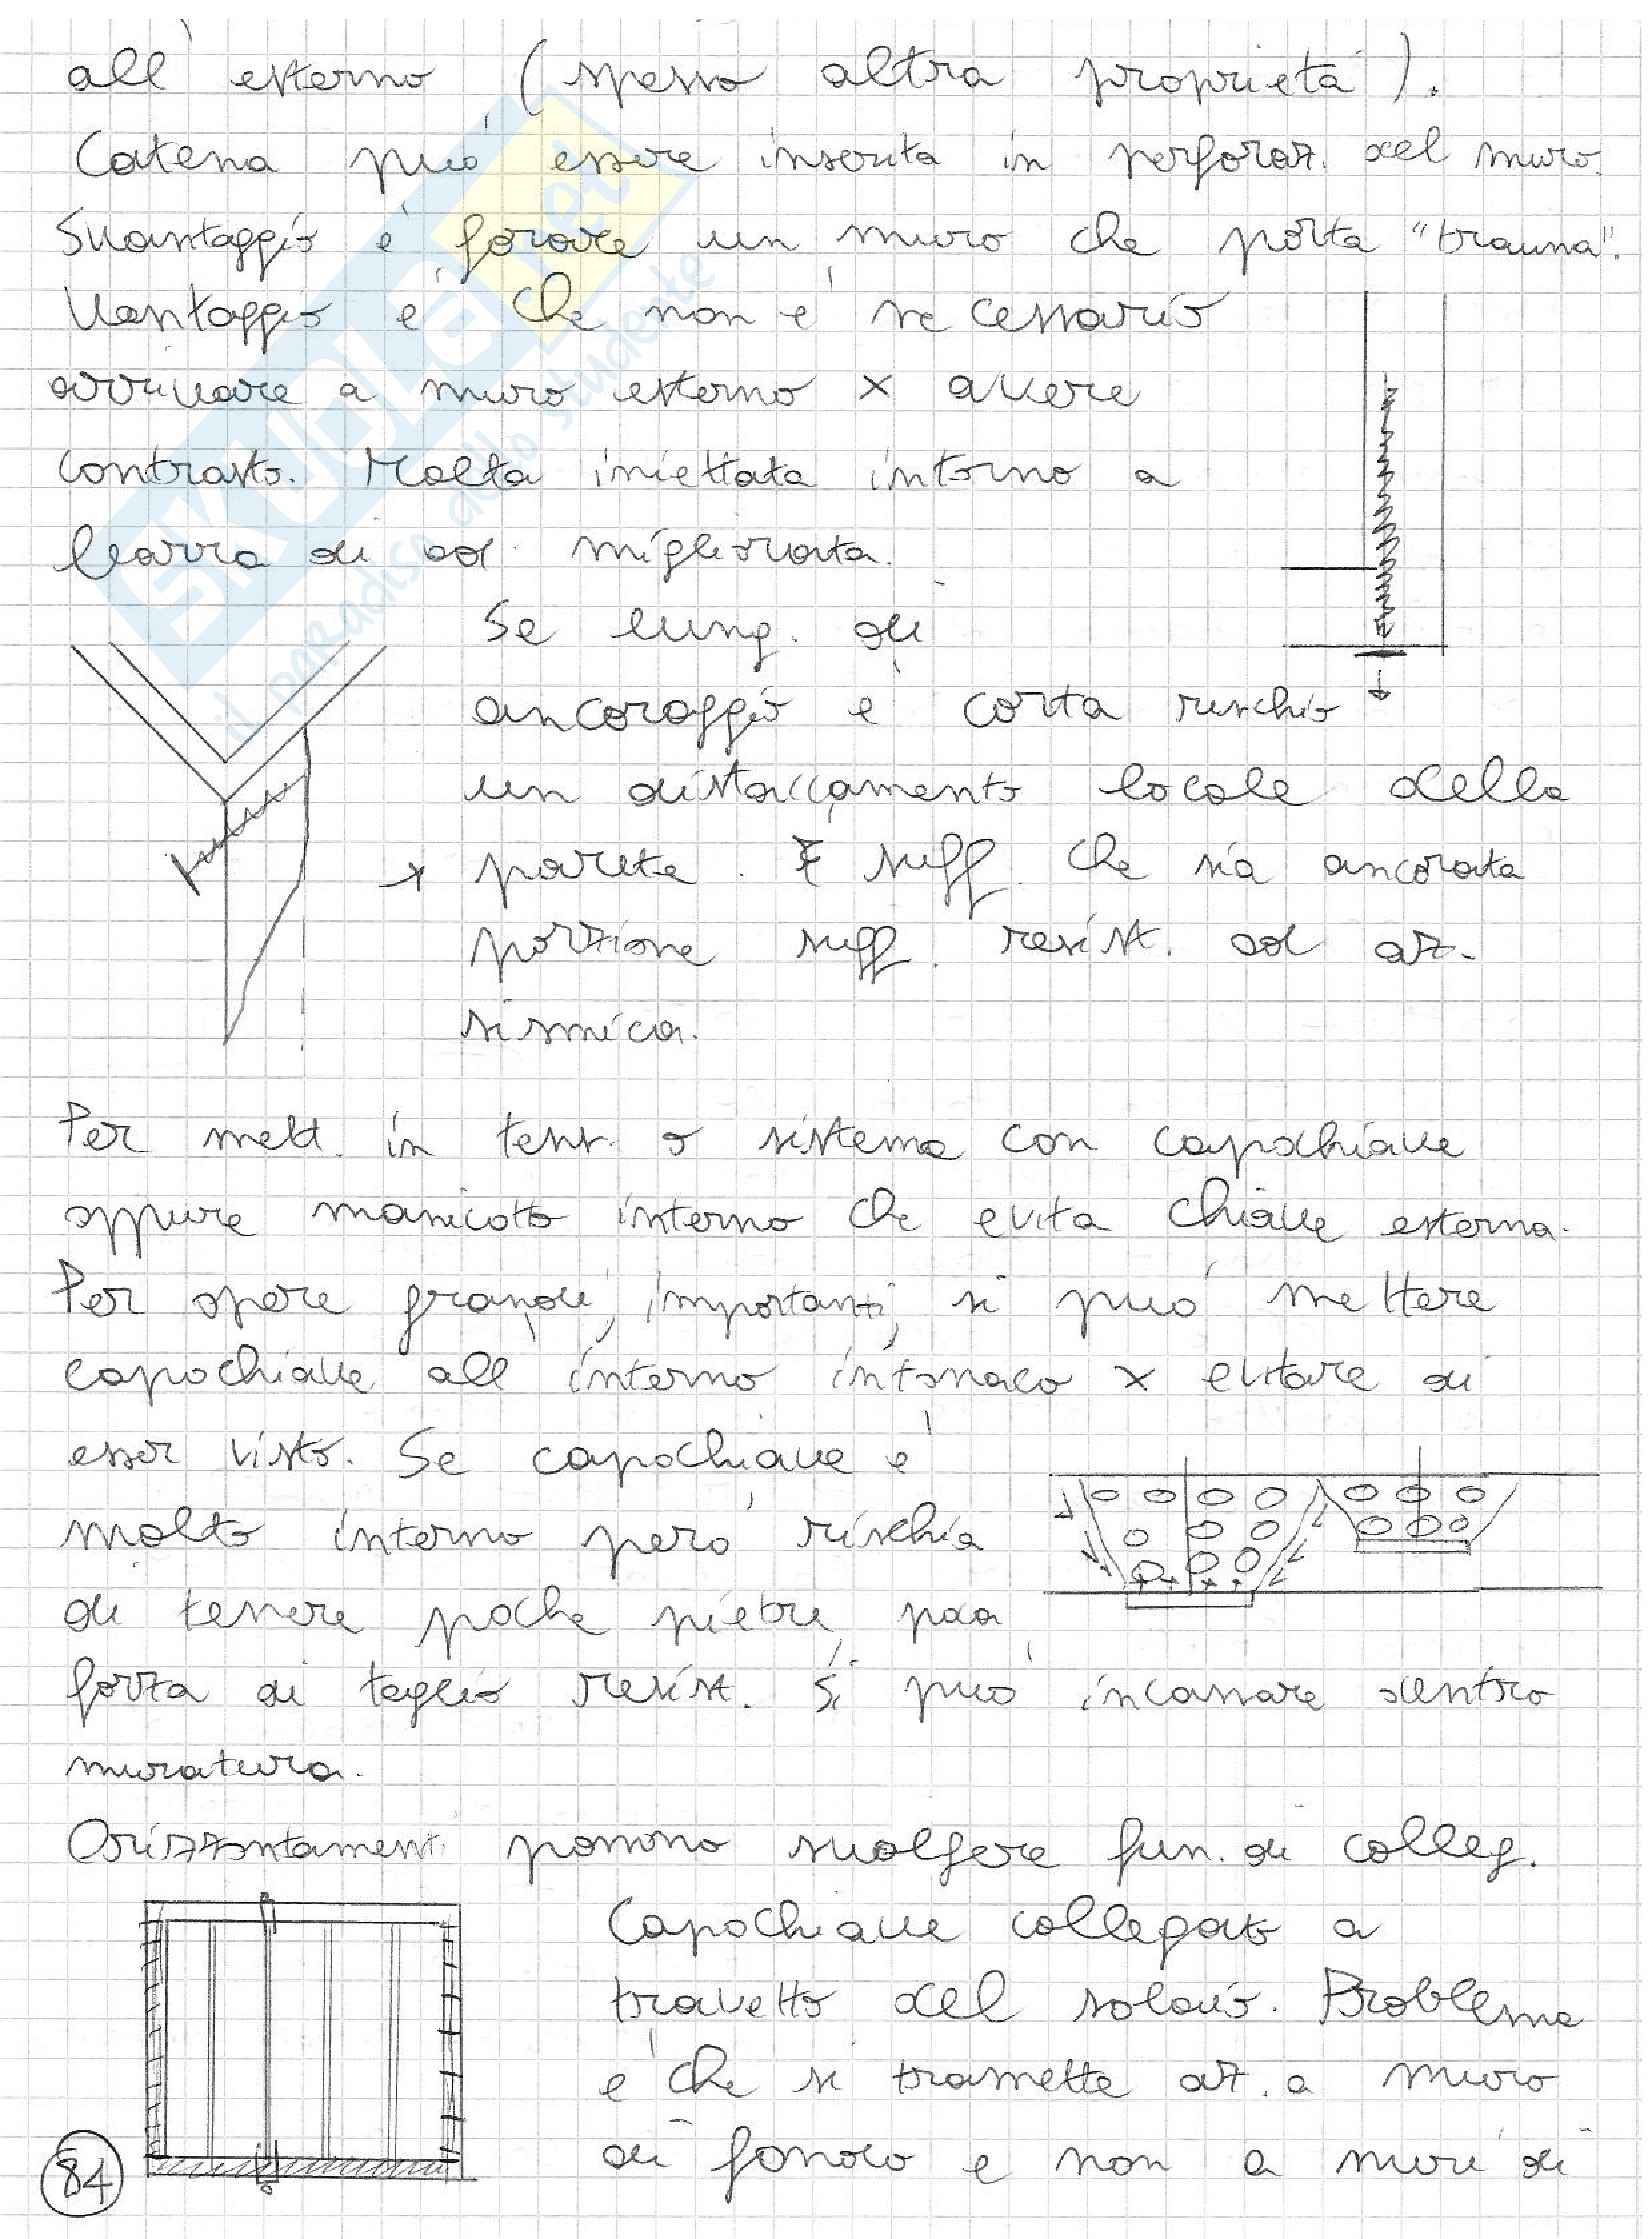 all'esterno (spesso altra proprietà).
Catena può essere inserita in perforaz. del muro.
Svantaggio è forare un muro che porta "trauma".
Vantaggio è che non è necessario
arrivare a muro esterno x avere
contrasto. Malta iniettata intorno a
barra di ad. migliorata.
Se lung. di
ancoraggio è corta rischio
un distaccamento locale della
parete. È suff. che sia ancorata
porzione suff. resist. ad az.
sismica.
Per mett. in tens. o sistema con capochiave
oppure manicotto interno che evita chiave esterna.
Per opere grandi, importanti, si può mettere
capochiave all'interno intonaco x evitare di
esser visto. Se capochiave è
molto interno però rischia
di tenere poche pietre, poca
forza di taglio resist. Si può incassare dentro
muratura.
Orizzontamenti possono svolgere fun. di colleg.
Capochiave collegato a
travetto del solaio. Problema
è che si tramette az. a muro
di fondo e non a muri di
84
SKUOLA.net
il paradiso dello studente